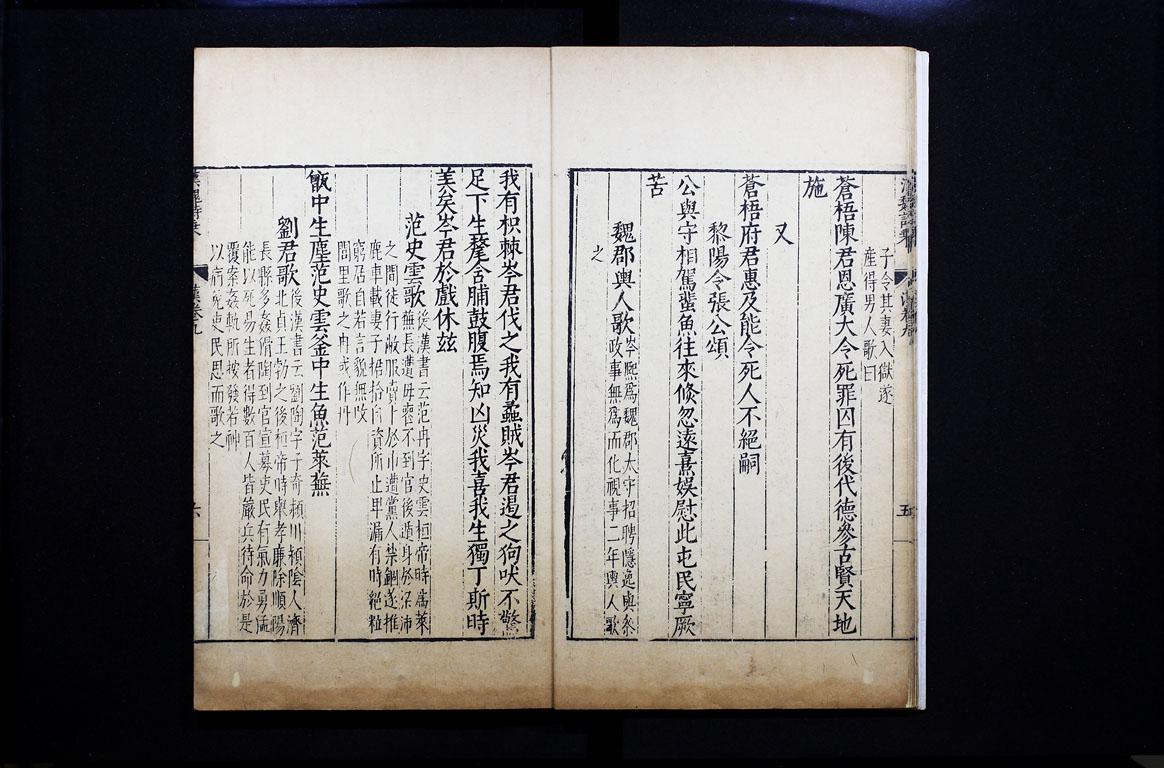 子令其妻入獄遂
産得男人歌曰
蒼梧陳君恩廣大令死罪囚有後代德參古賢天地
施
又
蒼梧府君惠及能令死人不絕嗣
黎陽令張公頌
公與守相駕蜚魚往來倏忽遠熹娛慰此屯民寧厥
苦
魏郡輿人歌岑熙為魏郡太守招聘隱逸與參
政事無為而化視事二年輿人歌
之
五
我有枳棘岑君伐之我有蟊賊岑君遏之狗吠不驚
足下生氂含脯鼓腹焉知凶災我喜我生獨丁斯時
美矣岑君於戲休玆
范史雲歌後漢書云范冉字史雲桓帝時為萊
蕪長遭母喪不到官後遁身於梁沛
之間徒行敝服賣卜於市遭黨人禁錮遂推
鹿車載妻子捃拾自資所止卑漏有時絕粒
窮居自若言貌無改
閭里歌之冉或作丹
甑中生塵范史雲釜中生魚范萊蕪
劉君歌後漢書云劉陶字子奇潁川潁陰人濟
北貞王勃之後桓帝時舉孝廉除順陽
長縣多姦猾陶到官宣募吏民有氣力勇猛
能以死易生者得數百人皆嚴兵待命於是
覆案姦軌所按發若神
以病免吏民思而歌之
漢卷九
六